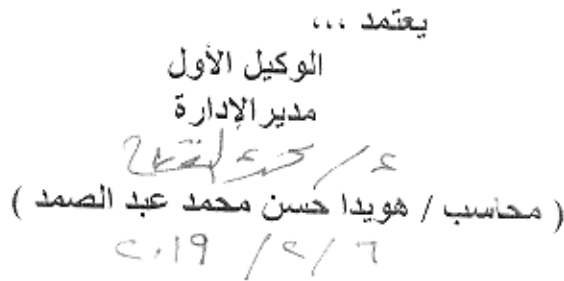 يعتمد ،،،
الوكيل الأول
مدير الإدارة
ع /
( محاسب / هويدا حسن محمد عبد الصمد )
٢٠١٩ / ٢ / ٦